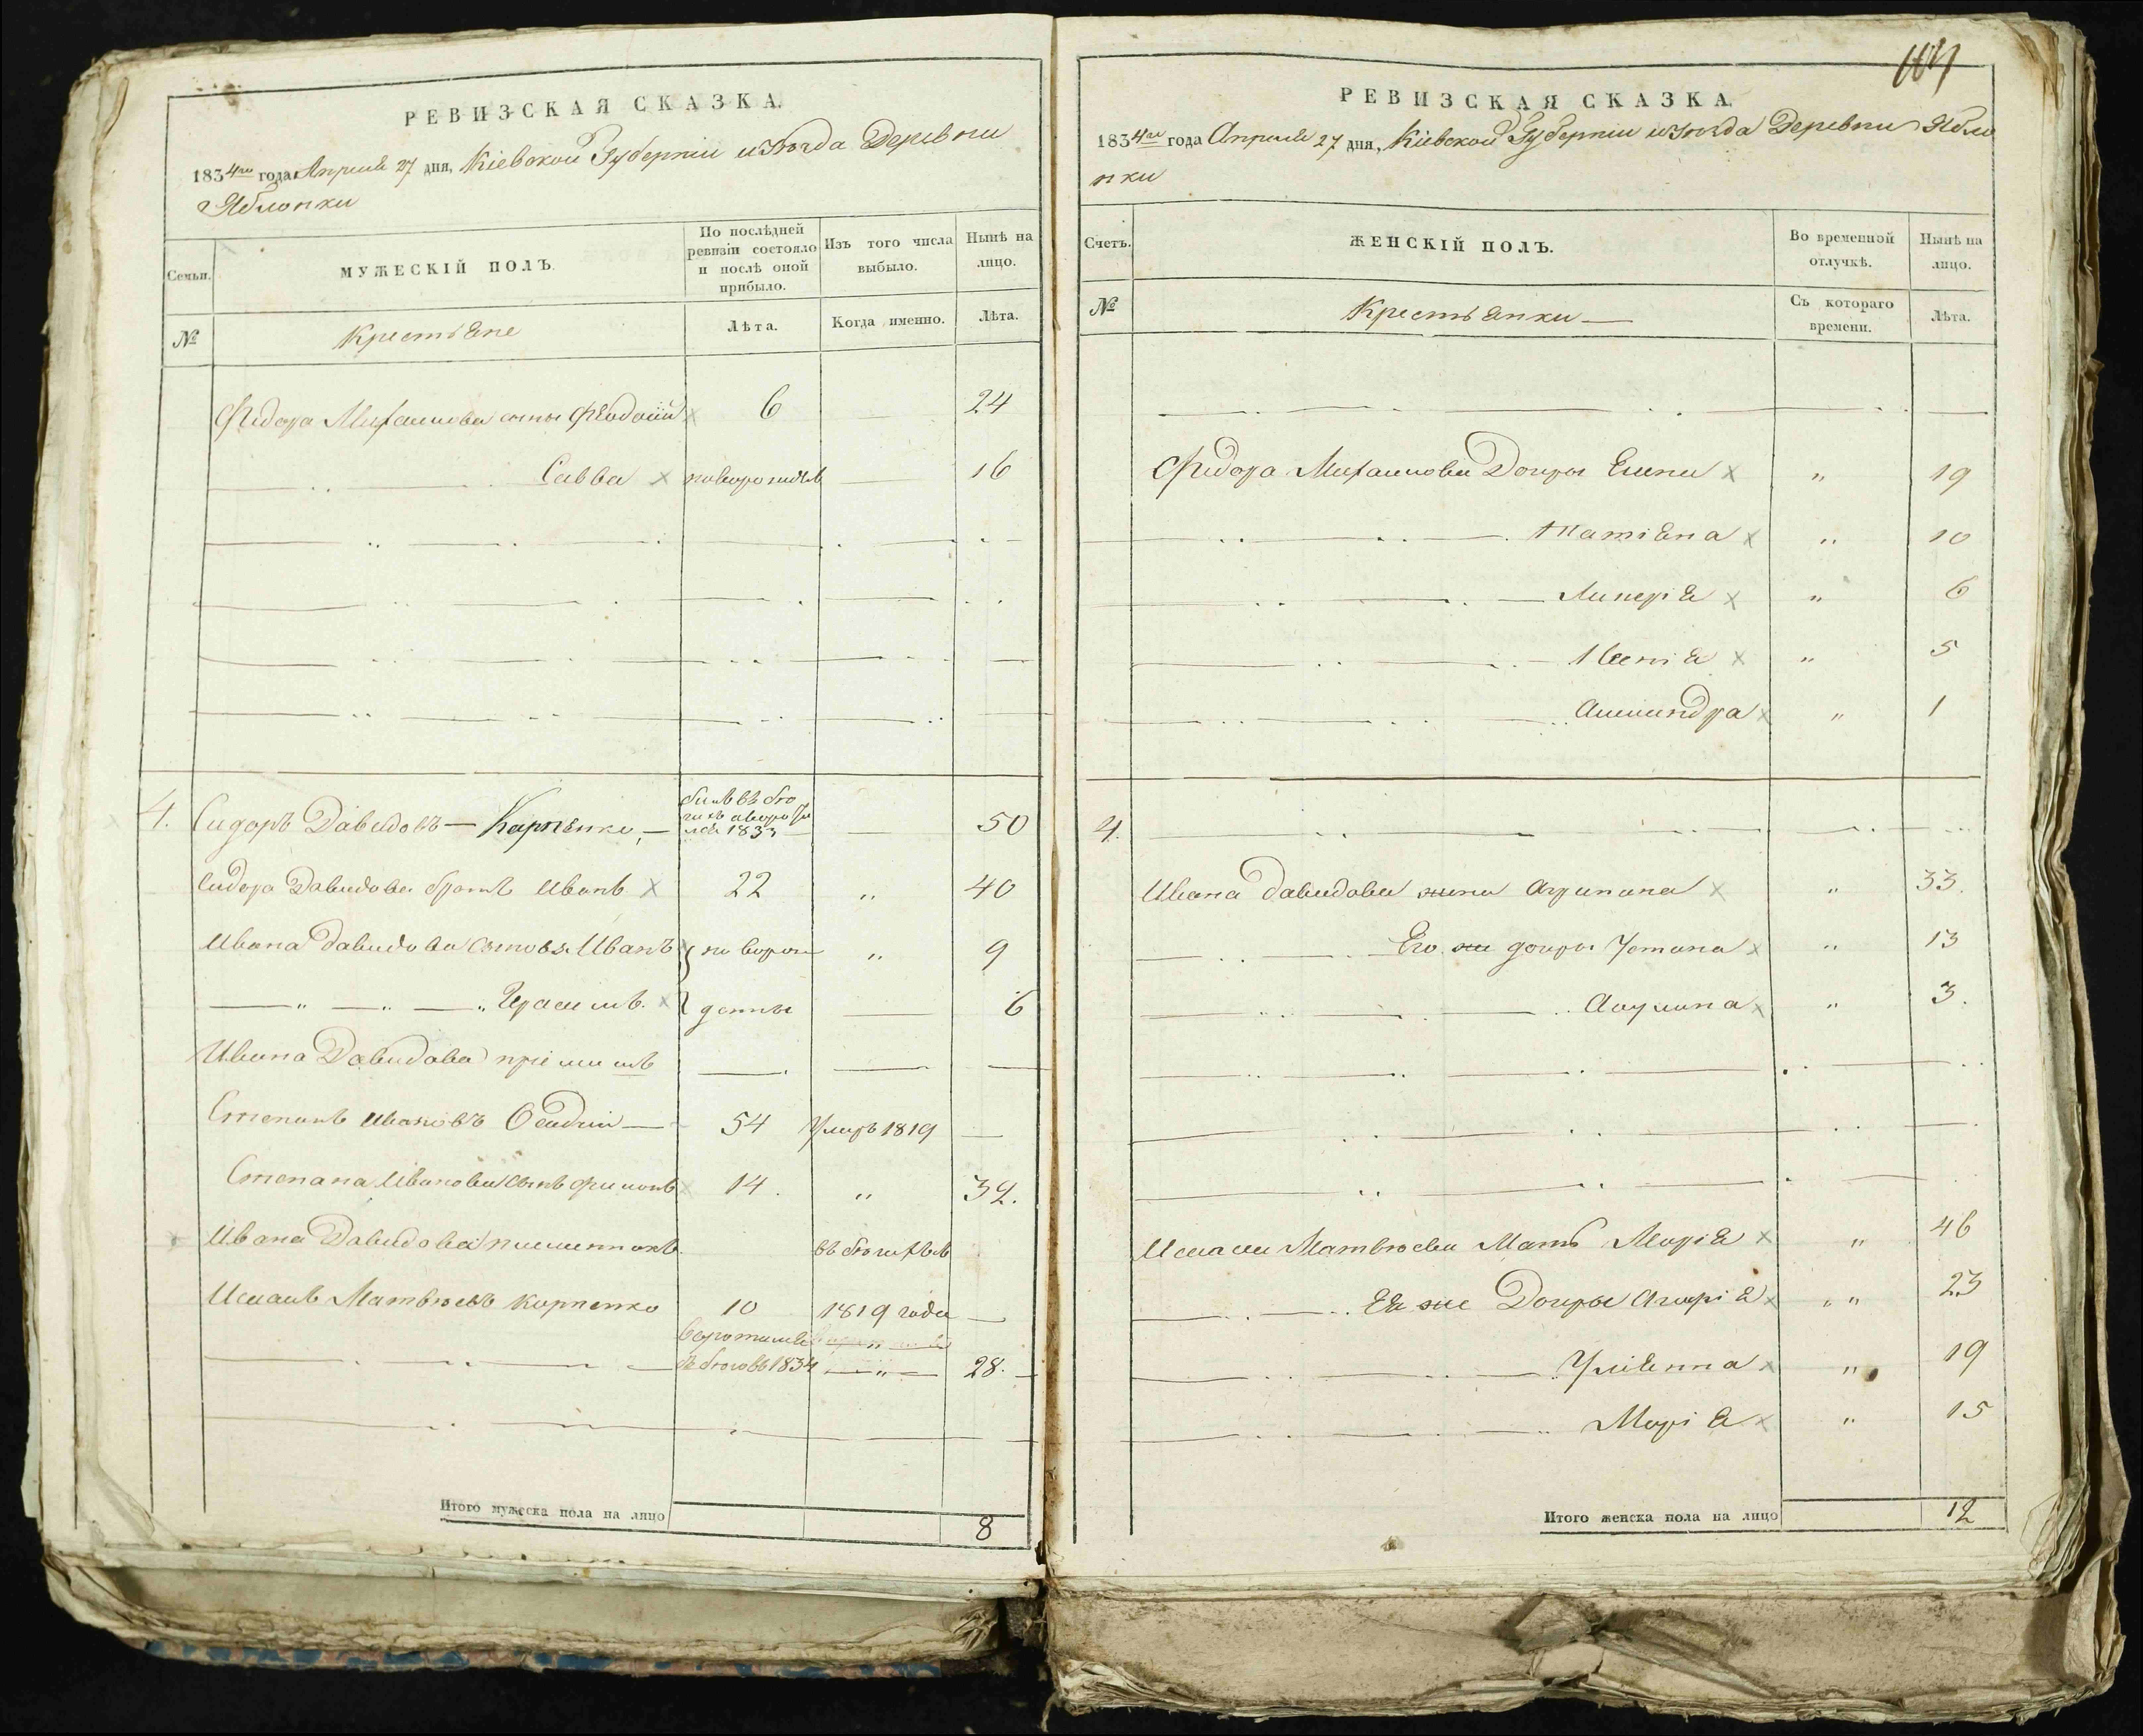 РЕВИЗСКАЯ СКАЗКА.
1834го года Апреля 27 дня, Кіевской Губерніи и уѣзда Деревни
Яблонки
Семьи.
МУЖЕСКІЙ ПОЛЪ.
По послѣдней
ревизіи состояло
и послѣ оной
прибыло.
Изъ того числа
выбыло.
Нынѣ на
лицо.
№
Крестьяне
Лѣта.
Когда именно.
Лѣта.
Фидора Михаилова сыны Феодосій 6 24
Савва новорожденъ 16
4. Сидоръ Давидовъ — Карпенко, — 1833 50
Сидора Давидова братъ Иванъ 22 " 40
Ивана Давидова сыновя Иванъ новорож " 9
Герасимъ денны 6
Ивана Давидова пріимышъ
Степанъ Ивановъ Осадчій — 54 Умеръ 1819 —
Степана Иванова сынъ Филонъ 14. " 32.
Ивана Давидова племянникъ въ бегахъ
Исаакъ Матвѣевъ Карпенко 10 1819 года —
воротился
1834 " 28.
Итого мужеска пола на лицо 8
104
РЕВИЗСКАЯ СКАЗКА.
1834го года Апреля 27 дня, Кіевской Губерніи и уѣзда Деревни Ябло
нки
Счетъ.
ЖЕНСКІЙ ПОЛЪ.
Во временной
отлучкѣ.
Нынѣ на
лицо.
№
Крестьянки —
Съ котораго
времени.
Лѣта.
Фидора Михаилова Дочеры Елена " 19
Татіяна " 10
Ликерія " 6
Ксенія " 5
Александра " 1
4.
Ивана Давидова жена Агрипина " 33.
Его же дочеры Устина " 13
Акулина " 3.
Исаака Матвѣева Мать Марія " 46
Ея же Дочеры Агафія " 23
Уліянна " 19
Марія " 15
Итого женска пола на лицо 12